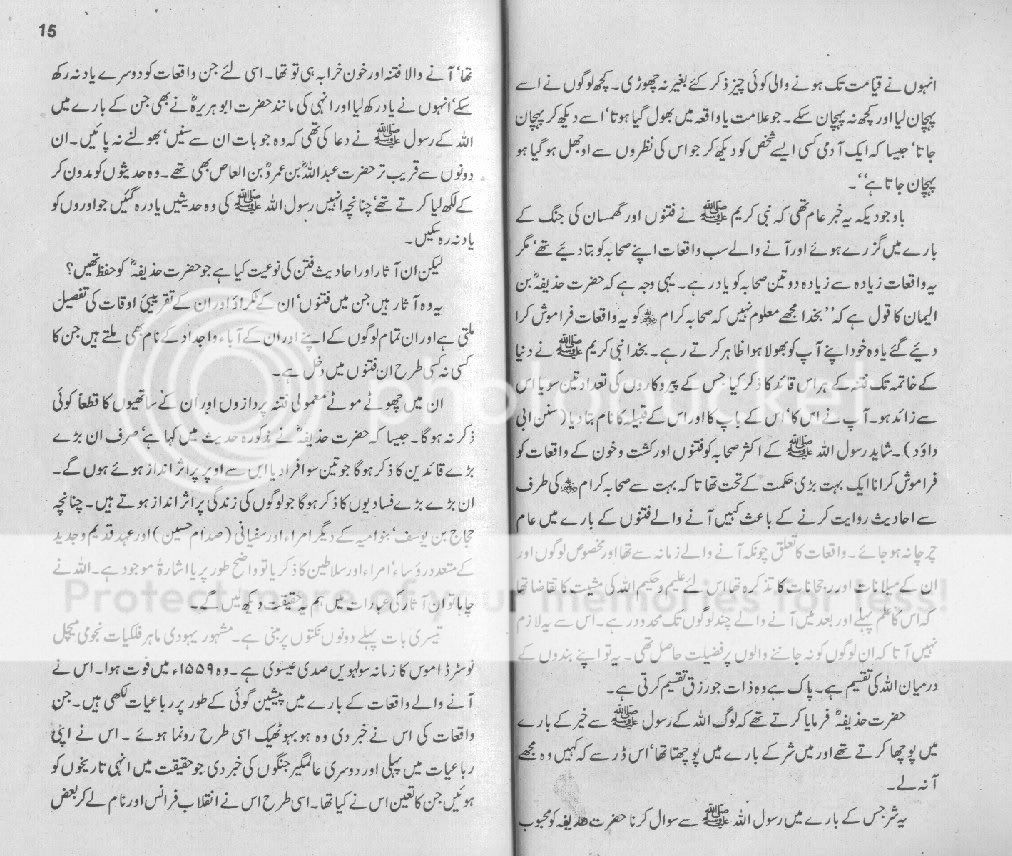 انہوں نے قیامت تک ہونے والی کوئی چیز ذکر کئے بغیر نہ چھوڑی۔ کچھ لوگوں نے اسے
پہچان لیا اور کچھ نہ پہچان سکے۔ جو علامت یا واقعہ میں بھول گیا ہوتا' اسے دیکھ کر پہچان
جاتا' جیسا کہ ایک آدمی کسی ایسے شخص کو دیکھ کر جو اس کی نظروں سے اوجھل ہو گیا ہو
پہچان جاتا ہے''۔
باوجودیکہ یہ خبر عام تھی کہ نبی کریم ﷺ نے فتنوں اور گھمسان کی جنگ کے
بارے میں گزرے ہوئے اور آنے والے سب واقعات اپنے صحابہ کو بتا دیے تھے' مگر
یہ واقعات زیادہ سے زیادہ دو تین صحابہ کو یاد رہے۔ یہی وجہ ہے کہ حضرت حذیفہؓ بن
الیمان کا قول ہے کہ ''بخدا مجھے معلوم نہیں کہ صحابہ کرام کو یہ واقعات فراموش کرا
دیئے گئے یا وہ خود اپنے آپ کو بھولا ہوا ظاہر کرتے رہے۔ بخدا نبی کریم ﷺ نے دنیا
کے خاتمہ تک فتنہ کے ہر اس قائد کا ذکر کیا جس کے پیروکاروں کی تعداد تین سو یا اس
سے زائد ہو۔ آپ نے اس کا' اس کے باپ کا اور اس کے قبیلہ کا نام بتا دیا (سنن ابی
داؤد)۔ شاید رسول اللہ ﷺ کے اکثر صحابہ کو فتنوں اور کشت و خون کے واقعات کو
فراموش کرانا ایک بہت بڑی حکمت کے تحت تھا تا کہ بہت سے صحابہ کرام کی طرف
سے احادیث روایت کرنے کے باعث کہیں آنے والے فتنوں کے بارے میں عام
چرچا نہ ہو جائے۔ واقعات کا تعلق چونکہ آنے والے زمانہ سے تھا اور مخصوص لوگوں اور
ان کے میلانات اور رجحانات کا تذکرہ تھا اس لئے علیم و حکیم اللہ کی مشیت کا تقاضا تھا
کہ اس کا علم پہلے اور بعد میں آنے والے چند لوگوں تک محدود رہے۔ اس سے یہ لازم
نہیں آتا کہ ان لوگوں کو نہ جاننے والوں پر فضیلت حاصل تھی۔ یہ تو اپنے بندوں کے
درمیان اللہ کی تقسیم ہے۔ پاک ہے وہ ذات جو رزق تقسیم کرتی ہے۔
حضرت حذیفہؓ فرمایا کرتے تھے کہ لوگ اللہ کے رسول ﷺ سے خیر کے بارے
میں پوچھا کرتے تھے اور میں شر کے بارے میں پوچھتا تھا' اس ڈر سے کہ کہیں وہ مجھے
آ نہ لے۔
یہ شر جس کے بارے میں رسول اللہ ﷺ سے سوال کرنا حضرت حذیفہ کو محبوب
15
تھا' آنے والا فتنہ اور خون خرابہ ہی تو تھا۔ اسی لئے جن واقعات کو دوسرے یاد نہ رکھ
سکے' انہوں نے یاد رکھ لیا اور انہی کی مانند حضرت ابو ہریرہؓ نے بھی جن کے بارے میں
اللہ کے رسول ﷺ نے دعا کی تھی کہ وہ جو بات ان سے سنیں' بھولنے نہ پائیں۔ ان
دونوں سے قریب تر حضرت عبداللہؓ بن عمروؓ بن العاص بھی تھے۔ وہ حدیثوں کو مدون کر
کے لکھ لیا کرتے تھے' چنانچہ انہیں رسول اللہ ﷺ کی وہ حدیثیں یاد رہ گئیں جو اوروں کو
یاد نہ رہ سکیں۔
لیکن ان آثار اور احادیث فتن کی نوعیت کیا ہے جو حضرت حذیفہؓ کو حفظ تھیں؟
یہ وہ آثار ہیں جن میں فتنوں' ان کے ٹکراؤ اور ان کے تقریبی اوقات کی تفصیل
ملتی ہے اور ان تمام لوگوں کے اپنے اور ان کے آباء و اجداد کے نام بھی ملتے ہیں جن کا
کسی نہ کسی طرح ان فتنوں میں دخل ہے۔
ان میں چھوٹے موٹے معمولی فتنہ پردازوں اور ان کے ساتھیوں کا قطعاً کوئی
ذکر نہ ہوگا۔ جیسا کہ حضرت حذیفہؓ نے مذکورہ حدیث میں کہا ہے' صرف ان بڑے
بڑے قائدین کا ذکر ہوگا جو تین سو افراد یا اس سے اوپر پر اثر انداز ہوئے ہوں گے۔
ان بڑے بڑے فسادیوں کا ذکر ہوگا جو لوگوں کی زندگی پر اثر انداز ہوتے ہیں۔ چنانچہ
حجاج بن یوسف' بنوامیہ کے دیگر امراء اور سفیانی (صدام حسین) اور عہد قدیم و جدید
کے متعدد رؤساء' امراء اور سلاطین کا ذکر یا تو واضح طور پر یا اشارۃً موجود ہے۔ اللہ نے
چاہا تو ان آثار کی عبارات میں ہم یہ حقیقت دیکھ لیں گے۔
تیسری بات پہلے دونوں نکتوں پر مبنی ہے۔ مشہور یہودی ماہر فلکیات نجومی میچل
نوسٹر ڈاموس کا زمانہ سولہویں صدی عیسوی ہے۔ وہ ۱۵۵۹ء میں فوت ہوا۔ اس نے
آنے والے واقعات کے بارے میں پیشین گوئی کے طور پر رباعیات لکھی ہیں۔ جن
واقعات کی اس نے خبر دی وہ ہو بہو ٹھیک اسی طرح رونما ہوئے۔ اس نے اپنی
رباعیات میں پہلی اور دوسری عالمگیر جنگوں کی خبر دی جو حقیقت میں انہی تاریخوں کو
ہوئیں جن کا تعین اس نے کیا تھا۔ اسی طرح اس نے انقلاب فرانس اور نام لے کر بعض
photobucket
Protect more of your memories for less!